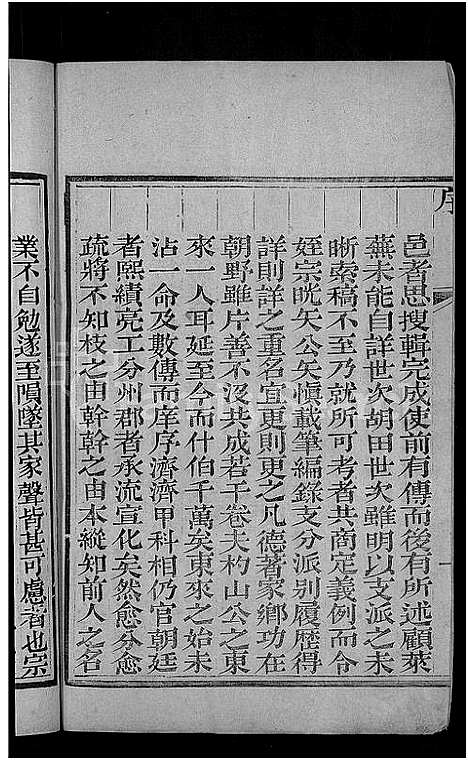 序
邑者思搜輯完成使前有傳而後有所述顧萊
蕪未能自詳世次胡田世次雖明以支派之未
晰索稿不至乃就所可考者共商定義例而令
姪宗晄矢公矢愼載筆編錄支分派別履歷得
詳則詳之重名宜更則更之凡德著家鄉功在
朝野雖片善不没共成若干卷夫杓山公之東
來一人耳延至今而什伯千萬矣東來之始未
沾一命及數傳而庠序濟濟甲科相仍官朝廷
者熙績亮工分州郡者承流宣化矣然愈分愈
疏將不知枝之由幹幹之由本縱知前人之名
業不自勉遂至隕墜其家聲皆甚可慮者也宗